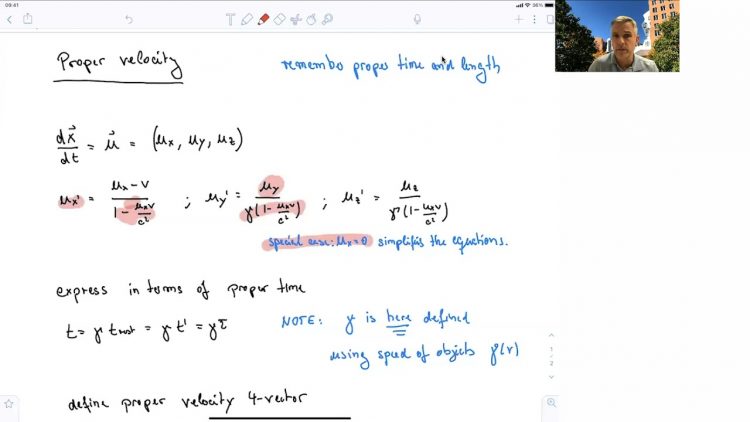 09:41
36%
Proper velocity
remember proper time and length
dx⃗/dt = u⃗ = (ux, uy, uz)
ux' = (ux - v)/(1 - uxv/c²) ; uy' = uy/(γ(1 - uxv/c²)) ; uz' = uz/(γ(1 - uxv/c²))
special case: ux=0 simplifies the equations.
express in terms of proper time
t = γ trest = γ t' = γτ
NOTE: γ is here defined
using speed of objects γ(v)
define proper velocity 4-vector
1
2